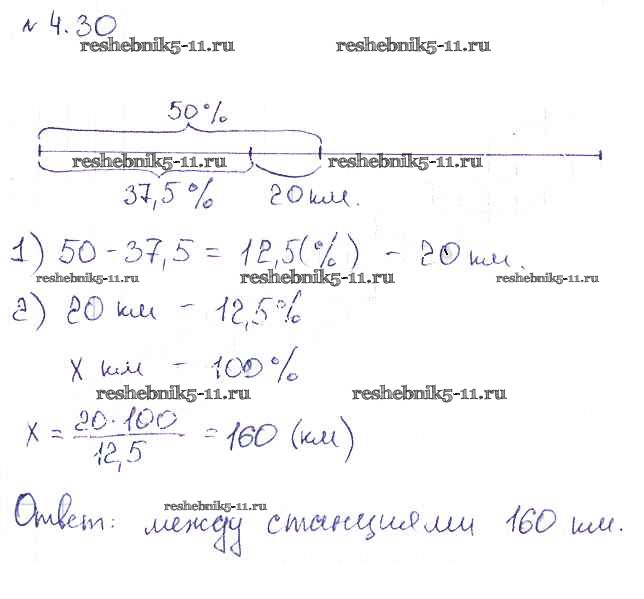 № 4.30
reshebnik5-11.ru reshebnik5-11.ru
50%
reshebnik5-11.ru reshebnik5-11.ru
37,5% 20 км.
1) 50 - 37,5 = 12,5(%) - 20 км.
reshebnik5-11.ru reshebnik5-11.ru reshebnik5-11.ru
2) 20 км - 12,5%
x км - 100%
reshebnik5-11.ru reshebnik5-11.ru
x = 20·100 / 12,5 = 160 (км)
reshebnik5-11.ru
Ответ: между станциями 160 км.